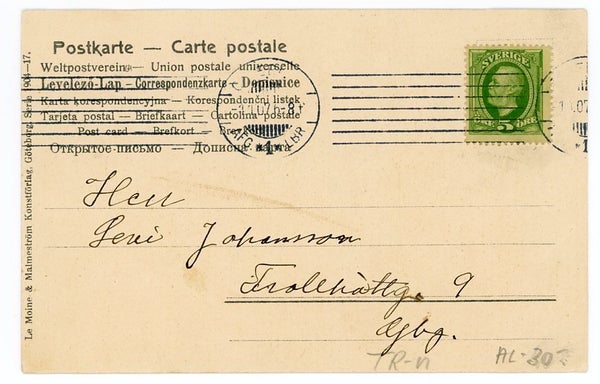 Postkarte — Carte postale
Weltpostverein — Union postale universelle
Levelező-Lap — Correspondenzkarte — Dopisnice
Karta korespondencyjna — Korespondenční lístek
Tarjeta postal — Briefkaart — Cartolina postale
Post card — Brefkort —
Открытое письмо — Дописна карта
SVERIGE
5
ÖRE
Le Moine & Malmeström Konstförlag, Göteborg. Serie 1904–17.
Herr
Johansson
Trollhättg. 9
Gbg.
TR-n
AL-302